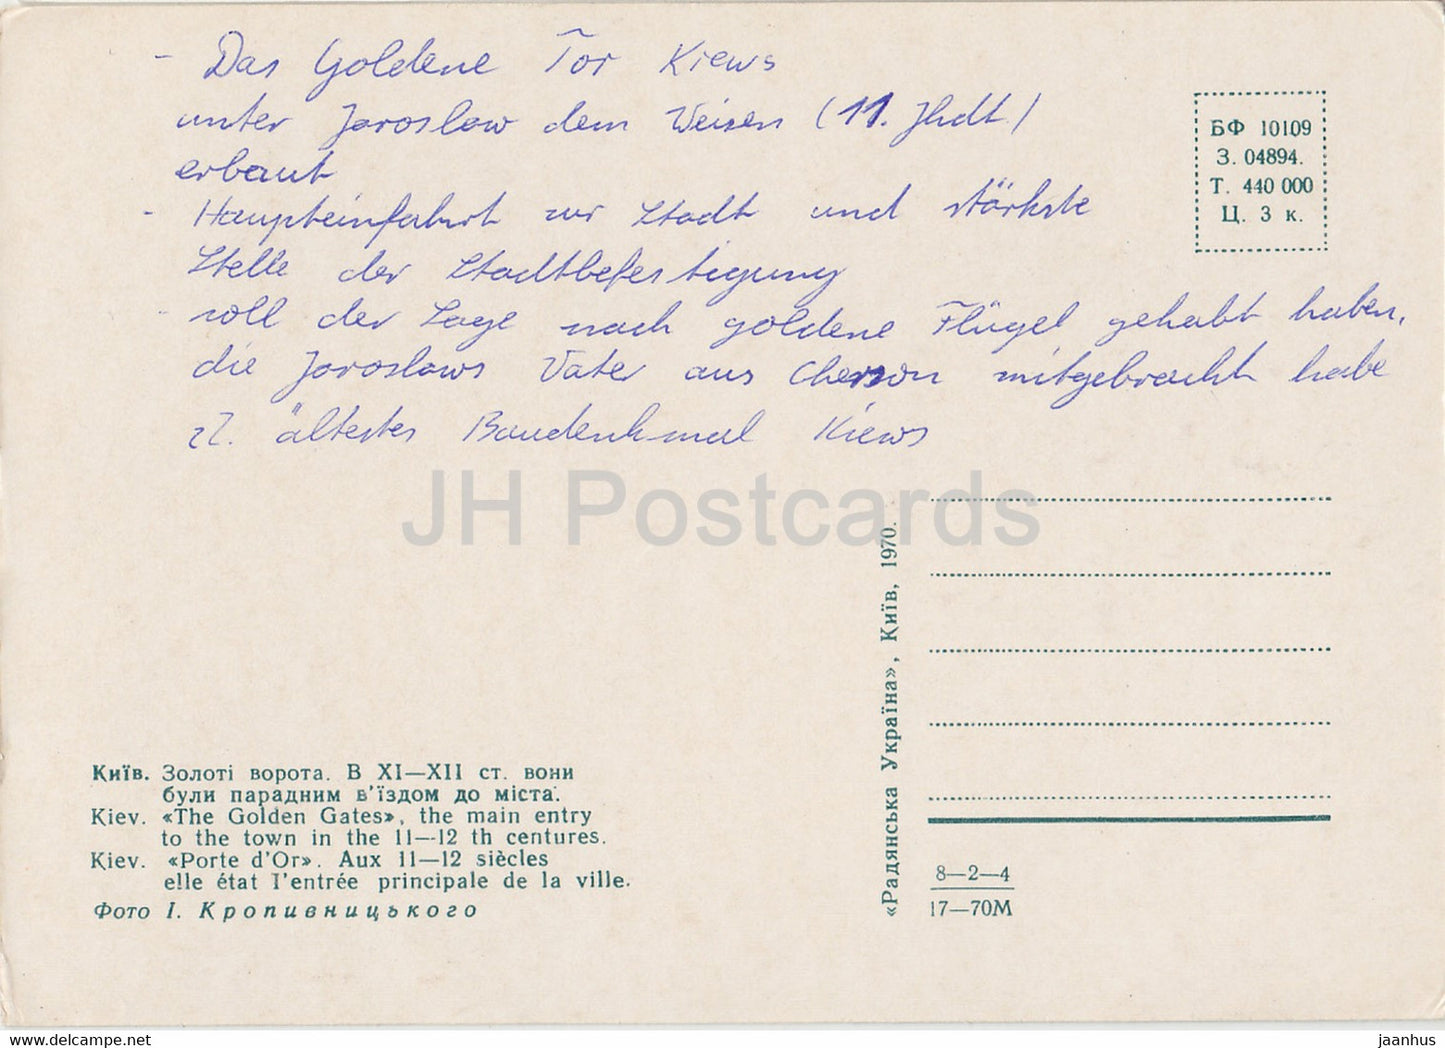 - Das Goldene Tor Kiews
unter Jaroslaw dem Weisen (11. Jhdt)
erbaut
- Haupteinfahrt zur Stadt und stärkste
Stelle der Stadtbefestigung
- soll der Sage nach goldene Flügel gehabt haben,
die Jaroslaws Vater aus Cherson mitgebracht habe
ältestes Baudenkmal Kiews
БФ 10109
З. 04894.
Т. 440 000
Ц. 3 к.
JH Postcards
«Радянська Україна», Київ, 1970.
Київ. Золоті ворота. В XI—XII ст. вони
були парадним в'їздом до міста.
Kiev. «The Golden Gates», the main entry
to the town in the 11—12 th centures.
Kiev. «Porte d'Or». Aux 11—12 siècles
elle état l'entrée principale de la ville.
Фото І. Кропивницького
8—2—4
17—70М
www.delcampe.net
jaanhus